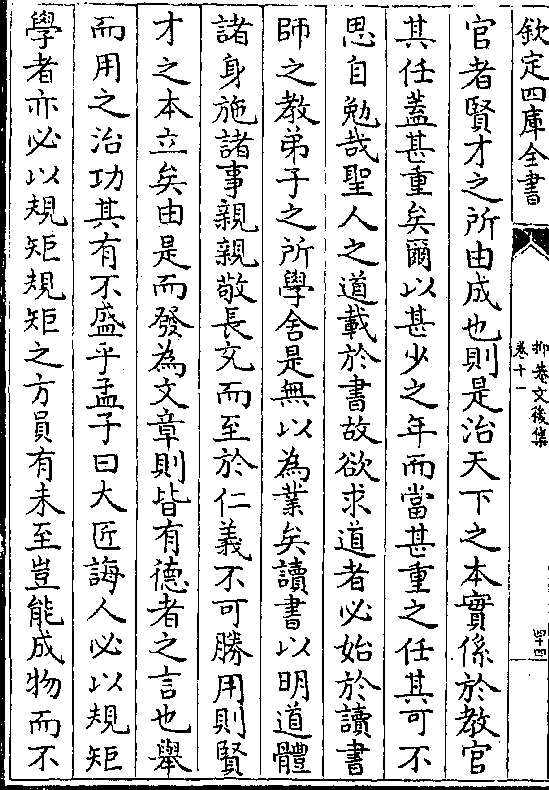 欽定四庫全書
抑菴文後集
卷十一
四十四
官者賢才之所由成也則是治天下之本實係於教官
其任蓋甚重矣爾以甚少之年而當甚重之任其可不
思自勉哉聖人之道載於書故欲求道者必始於讀書
師之教弟子之所學舍是無以為業矣讀書以明道體
諸身施諸事親親敬長充而至於仁義不可勝用則賢
才之本立矣由是而發為文章則皆有德者之言也舉
而用之治功其有不盛乎孟子曰大匠誨人必以規矩
學者亦必以規矩規矩之方員有未至豈能成物而不